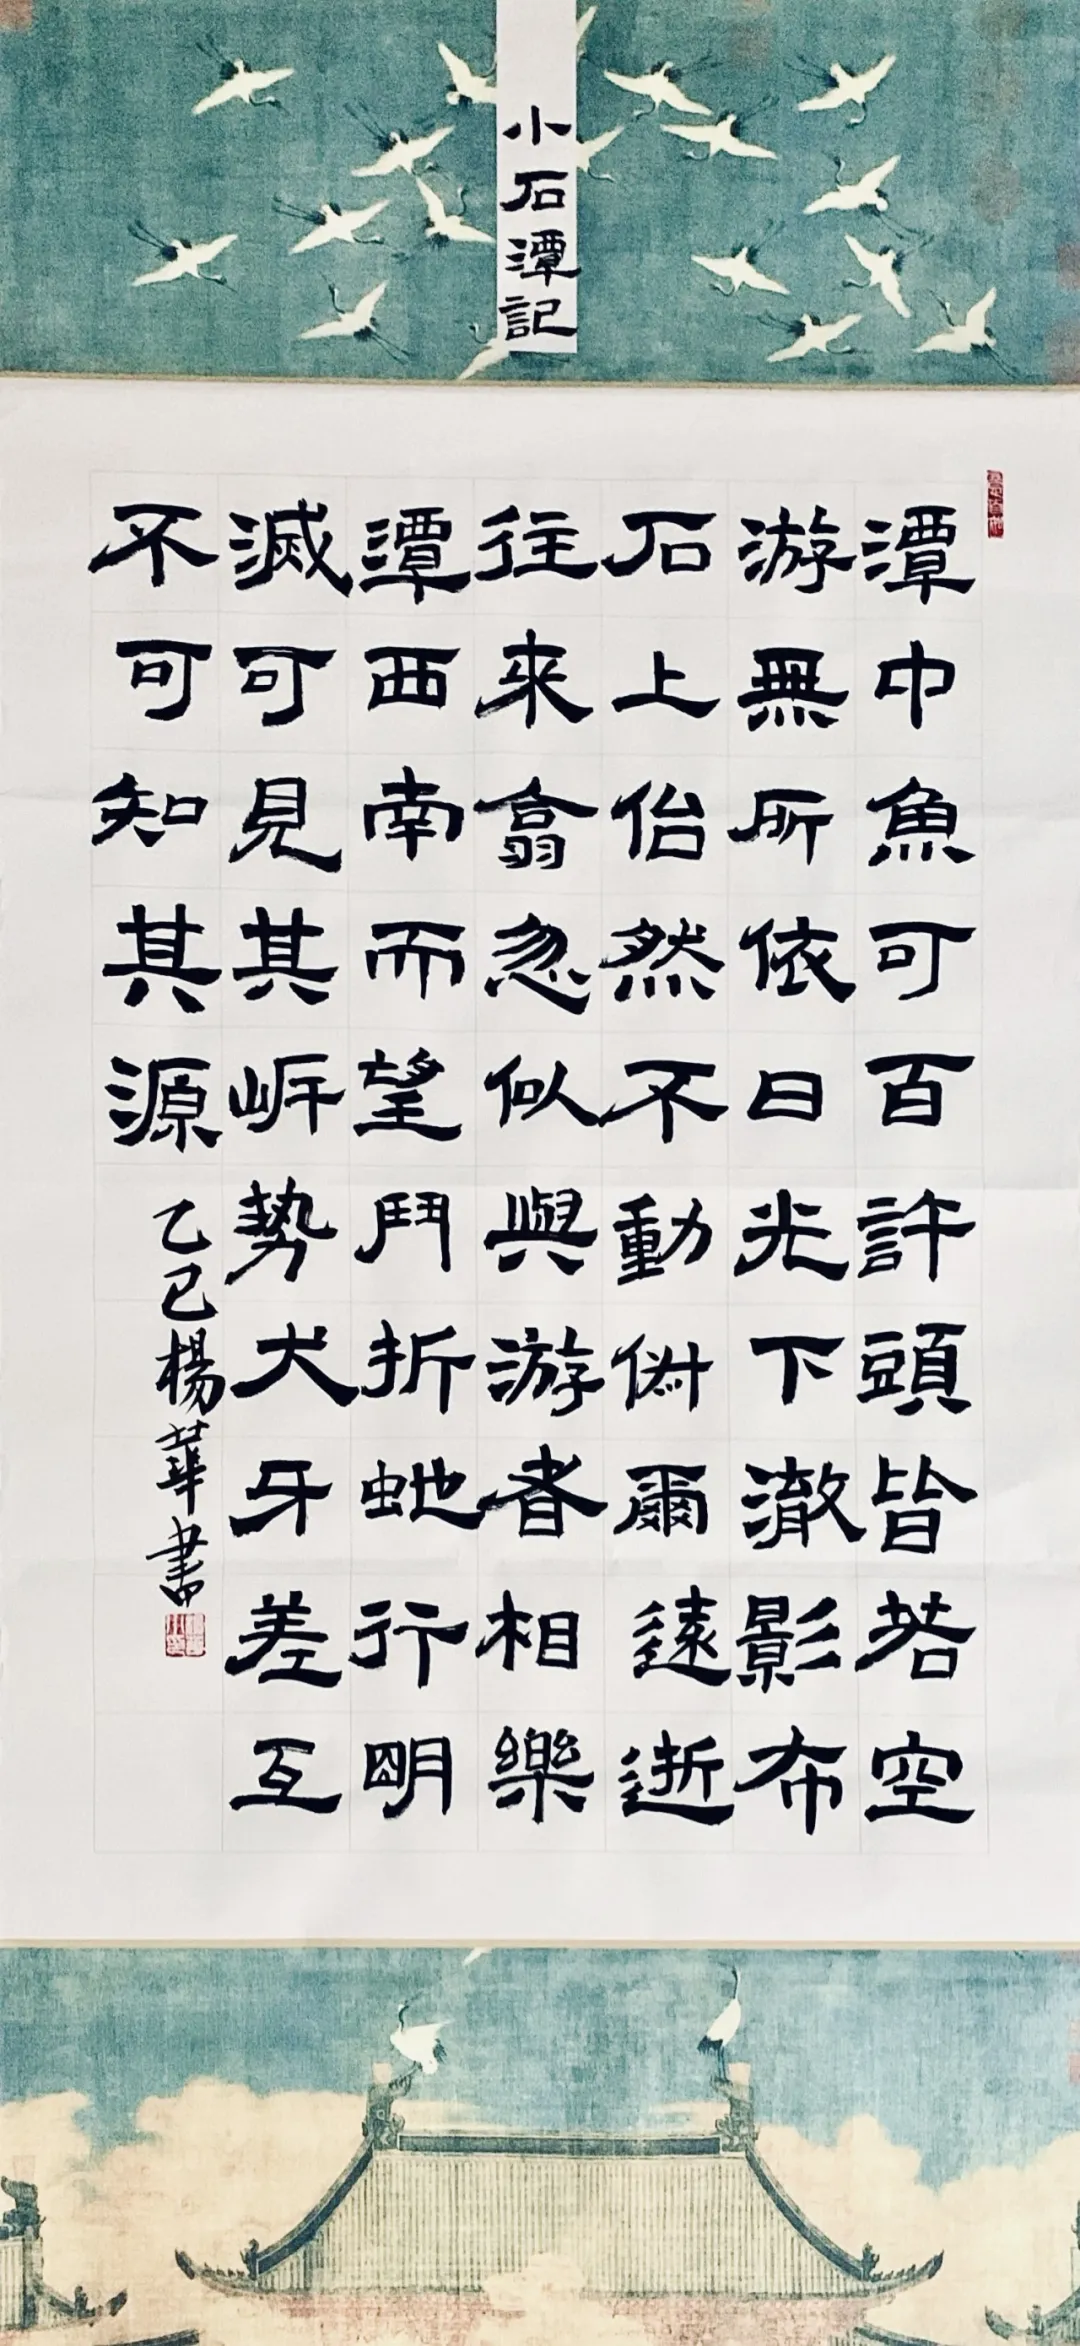 小石潭記
潭中魚可百許頭皆若空
游無所依日光下澈影布
石上佁然不動俶爾遠逝
往來翕忽似與游者相樂
潭西南而望鬥折虵行明
滅可見其岸勢犬牙差互
不可知其源
乙巳楊華書